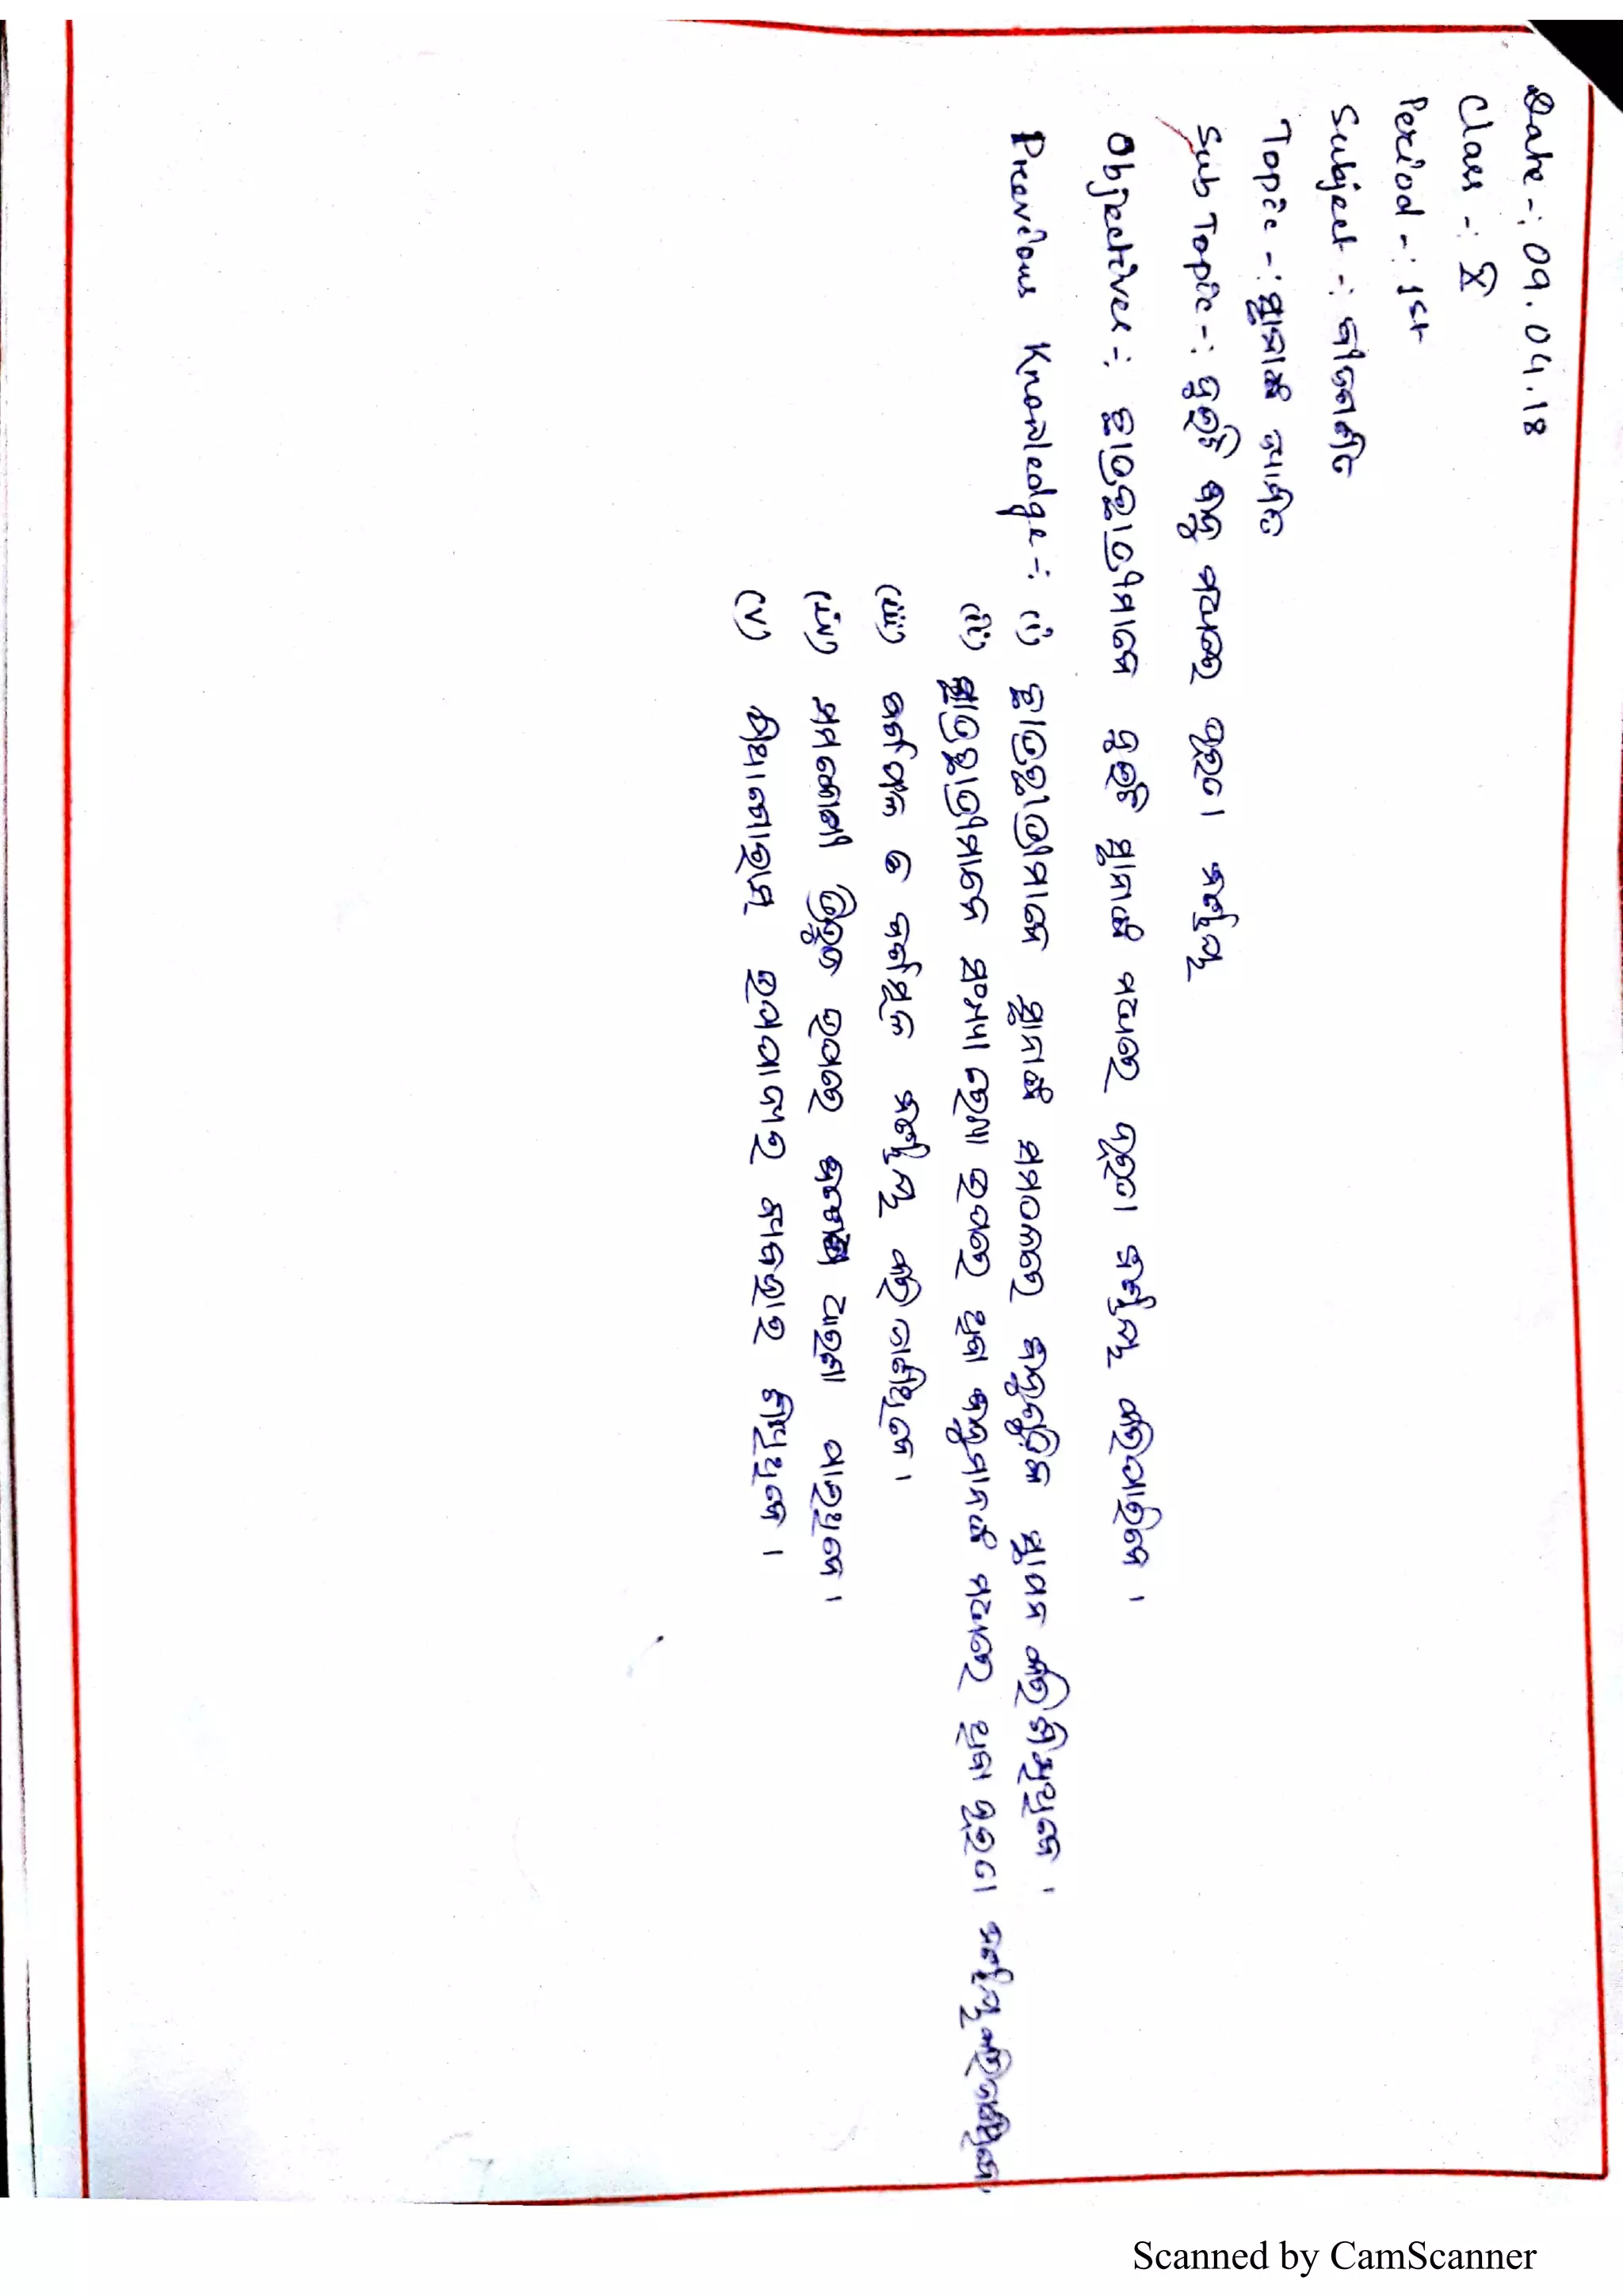 Date -: 09.04.18
Class -: X
Period -: 1st
Subject -: ବୀଜଗଣିତ
Topic -: ସ୍ଥାନାଙ୍କ ଜ୍ୟାମିତି
Sub Topic -: ଦୁଇଟି ବିନ୍ଦୁ ମଧ୍ୟରେ ଦୂରତା ନିର୍ଣ୍ଣୟ
Objectives -: ଛାତ୍ରଛାତ୍ରୀମାନେ ଦୁଇଟି ସ୍ଥାନାଙ୍କ ମଧ୍ୟରେ ଦୂରତା ନିର୍ଣ୍ଣୟ କରିପାରିବେ ।
Previous Knowledge -: (i) ଛାତ୍ରଛାତ୍ରୀମାନେ ସ୍ଥାନାଙ୍କ ସମତଳରେ ବିନ୍ଦୁଗୁଡ଼ିକ ସ୍ଥାପନ କରି ଶିଖିଥିବେ ।
(ii) ଛାତ୍ରଛାତ୍ରୀମାନେ ସଂଖ୍ୟା ରେଖା ଉପରେ ଥିବା ବିନ୍ଦୁମାନଙ୍କ ମଧ୍ୟରେ ଥିବା ଦୂରତା ନିର୍ଣ୍ଣୟ
(iii) ବର୍ଗଫଳ ଓ ବର୍ଗମୂଳ ନିର୍ଣ୍ଣୟ କରି ଜାଣିଥିବେ ।
(iv) ସମକୋଣୀ ତ୍ରିଭୁଜ ଉପରେ ଧାରଣା ପାଇଥିବେ ।
(v) ପିଥାଗୋରାସ୍ ଉପପାଦ୍ୟର ବ୍ୟବହାର ଶିଖିଥିବେ ।
Scanned by CamScanner